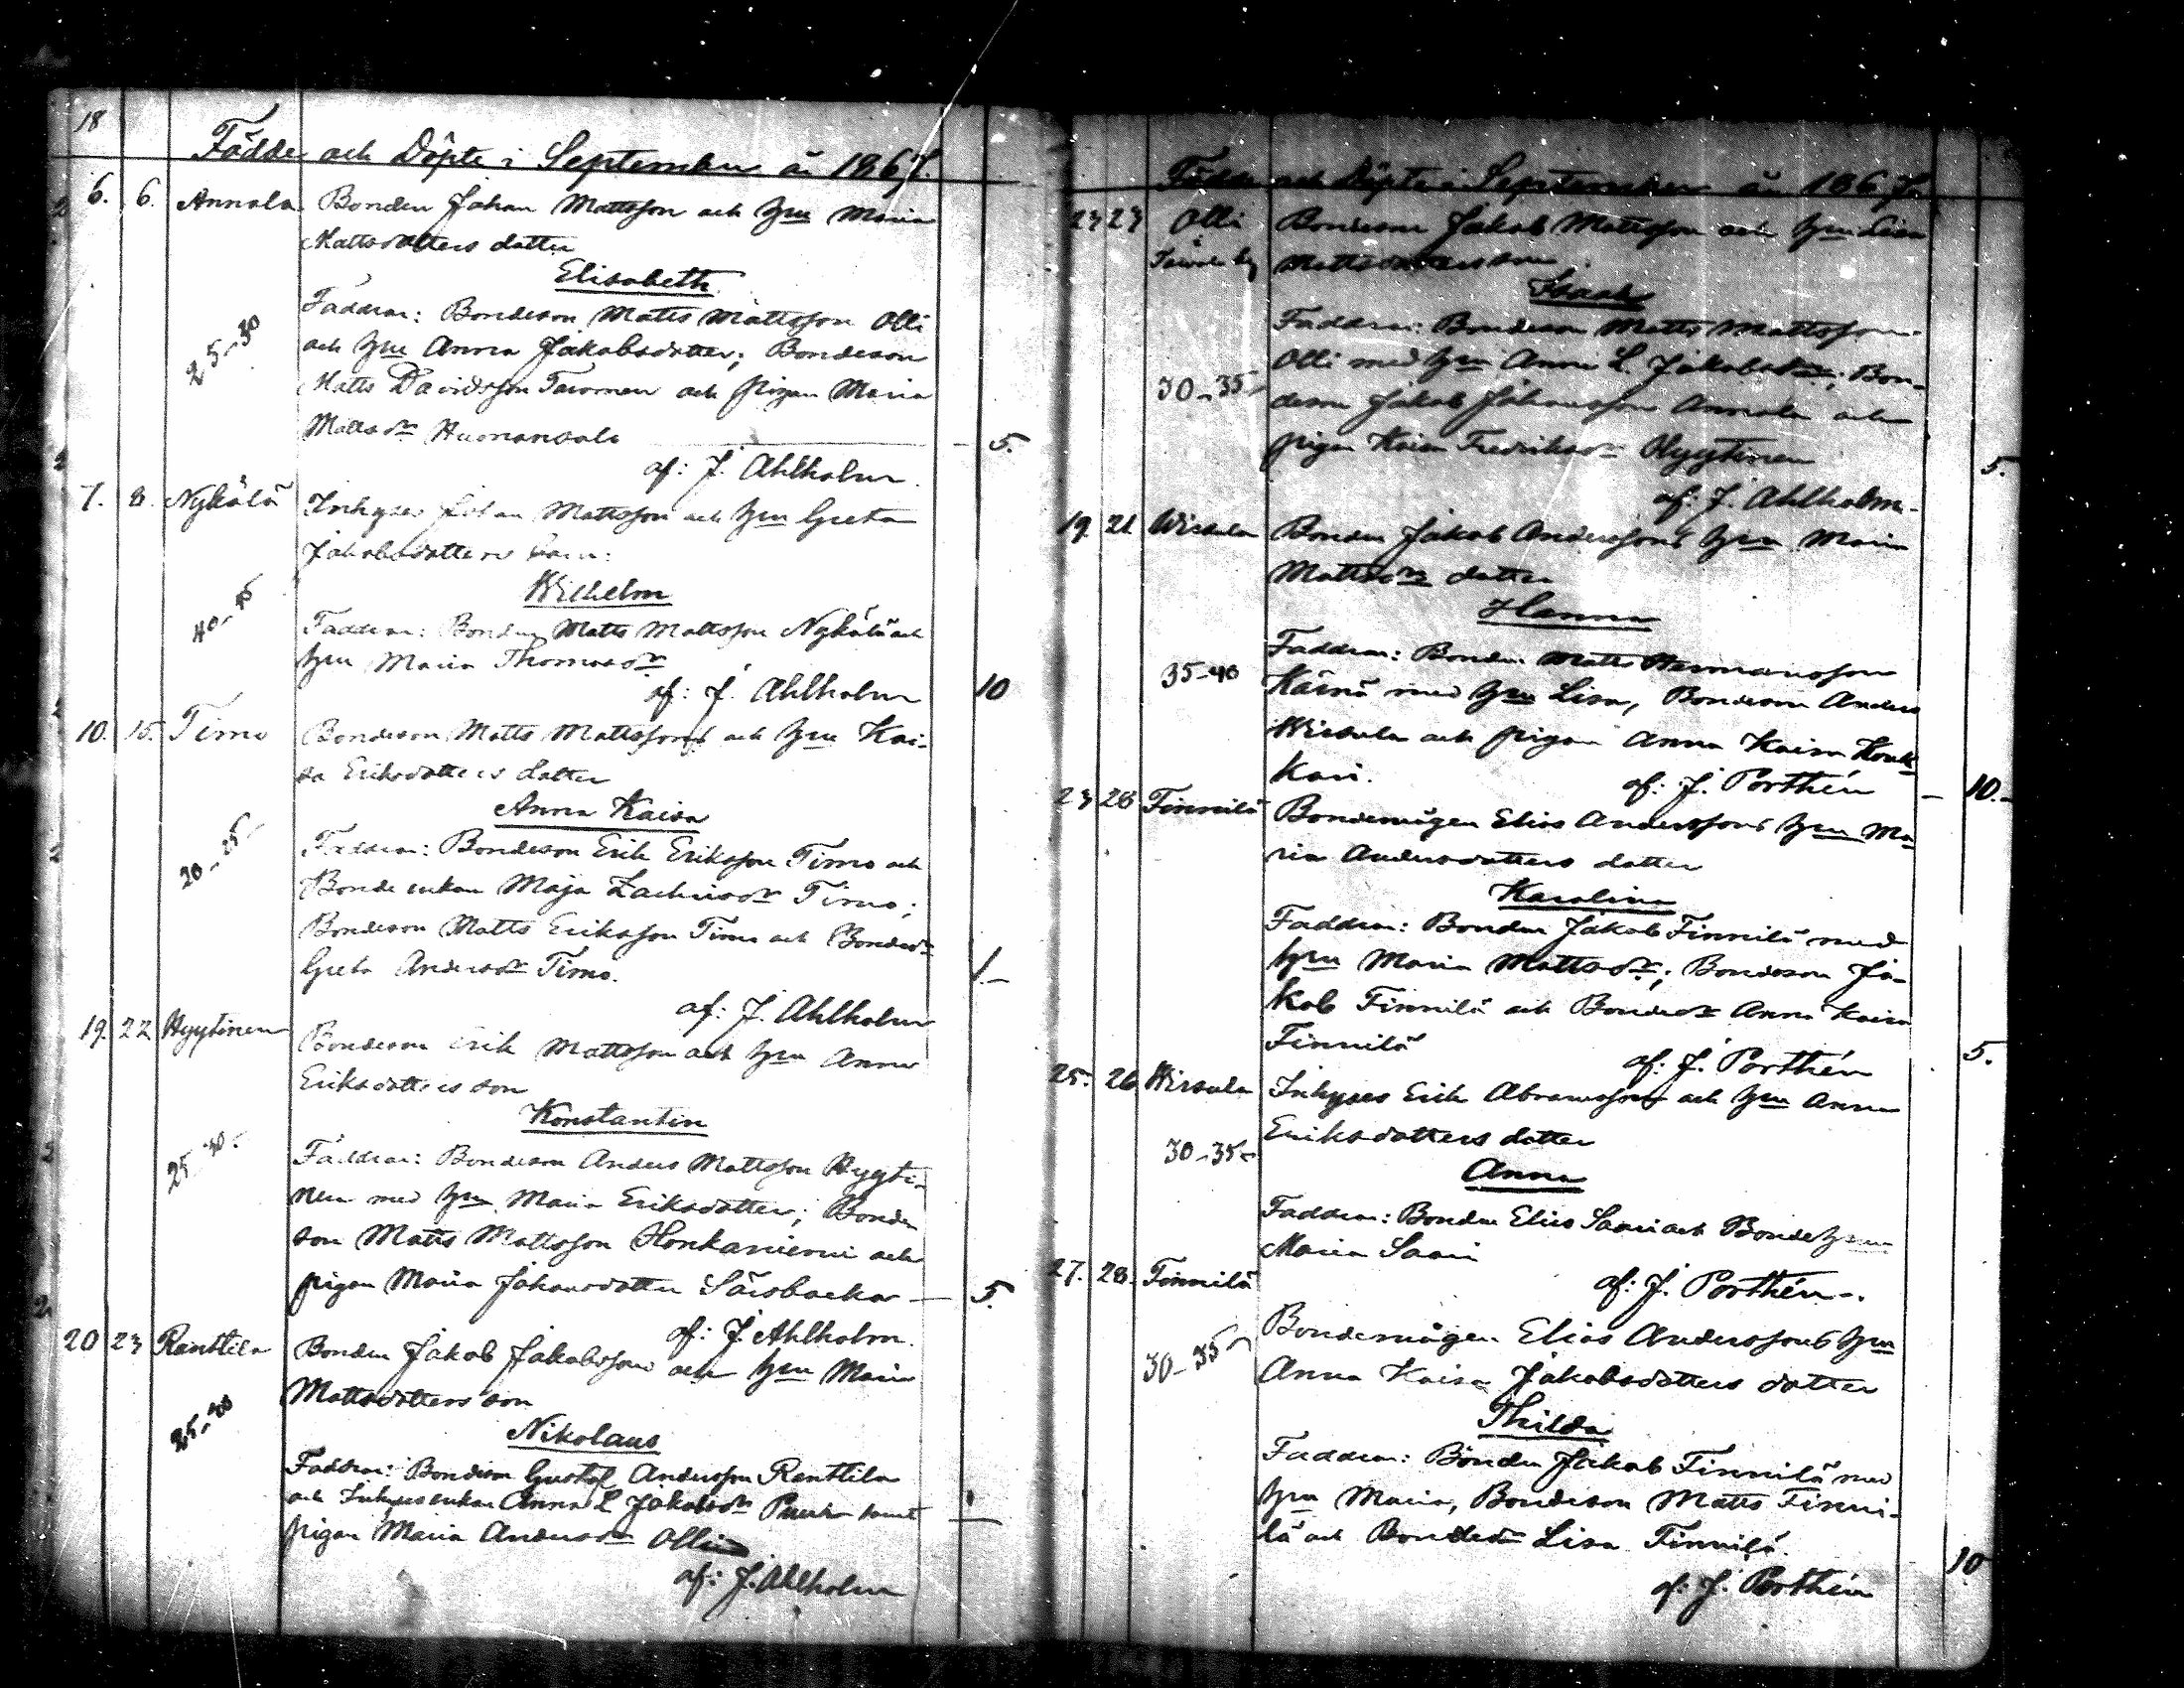 18
Födde och Döpte i September år 1867.
6. 6. Annala Bonden Johan Mattsson och hru Maria
Mattsdotters dotter
Elisabeth
25-30
Faddrar: Bondeson Matts Mattsson Olli
och hru Anna Jakobsdotter; Bondeson
Matts Davidsson Tavonen och pigan Maria
Mattsdr
5.
af: J. Ahlholm.
7. 8. Nykälä Inhyses Johan Mattsson och hru Greta
Jakobsdotters barn:
Wilhelm
40-45
Faddrar: Bonden Matts Mattsson Nykälä och
hru Maria Thomasdr
af: J. Ahlholm
10
10. 15. Timo Bondeson Matts Mattssons och hru Kai-
sa Eriksdotters dotter
Anna Kaisa
20-25-
Faddrar: Bondeson Erik Eriksson Timo och
Bonde enkan Maja Zachrisdr Timo;
Bondeson Matts Eriksson Timo och Bondedr
Greta Andersdr Timo.
1.-
af: J. Ahlholm
19. 22 Hyytinen
Bondeson Erik Mattsson och hru Anna
Eriksdotters son
Konstantin
25-30-
Faddrar: Bondeson Anders Mattsson Hyyti-
nen med hru Maria Eriksdotter; Bonde
son Matts Mattsson Honkaniemi och
pigan Maria Johansdotter Särsbacka
5.
af: J. Ahlholm.
20 23 Ranttila Bonden Jakob Jakobsson och hru Maria
Mattsdotters son
Nikolaus
Faddrar: Bondeson Gustaf Andersson Ranttila
och Inhysesenkan Anna L Jakobsdr samt
pigan Maria Andersdr Olli
af: J. Ahlholm
Födde och Döpte i September år 1867.
23 23 Olli Bondeson Jakob Mattsson och hru Lisa
Mattsdotters son
Isaak
Faddrar: Bondeson Matts Mattsson
30-35-
Olli med hru Anna L. Jakobsdr; Bon-
deson Jakob Johansson Annala och
pigan Kaisa Fredriksdr Hyytinen
5.
af: J. Ahlholm.
19. 21 Wirkula Bonden Jakob Anderssons hru Maria
Mattsdrs dotter
Hanna
35-40
Faddrar: Bonden Matts Hermansson
Kärnä med hru Lisa, Bondeson Anders
Wirkula och pigan Anna Kaisa
kari.
af: J. Porthén
10.-
23 28 Finnilä Bondemågen Elias Anderssons hru Ma-
ria Andersdotters dotter
Karolina
Faddrar: Bonden Jakob Finnilä med
hru Maria Mattsdr; Bondeson Ja-
kob Finnilä och Bondedr Anna Kaisa
Finnilä
af: J. Porthén
5.
25. 26 Wirkula Inhyses Erik Abramsson och hru Anna
Eriksdotters dotter
30-35-
Anna
Faddrar: Bonden Elias Saari och Bondehrun
Maria Saari
af: J. Porthén.
27. 28. Finnilä
Bondemågen Elias Anderssons hru
30-35
Anna Kaisa Jakobsdotters dotter
Thilda
Faddrar: Bonden Jakob Finnilä med
hru Maria, Bondeson Matts Finni-
lä och Bondedr Lisa Finnilä.
af: J. Porthén
10